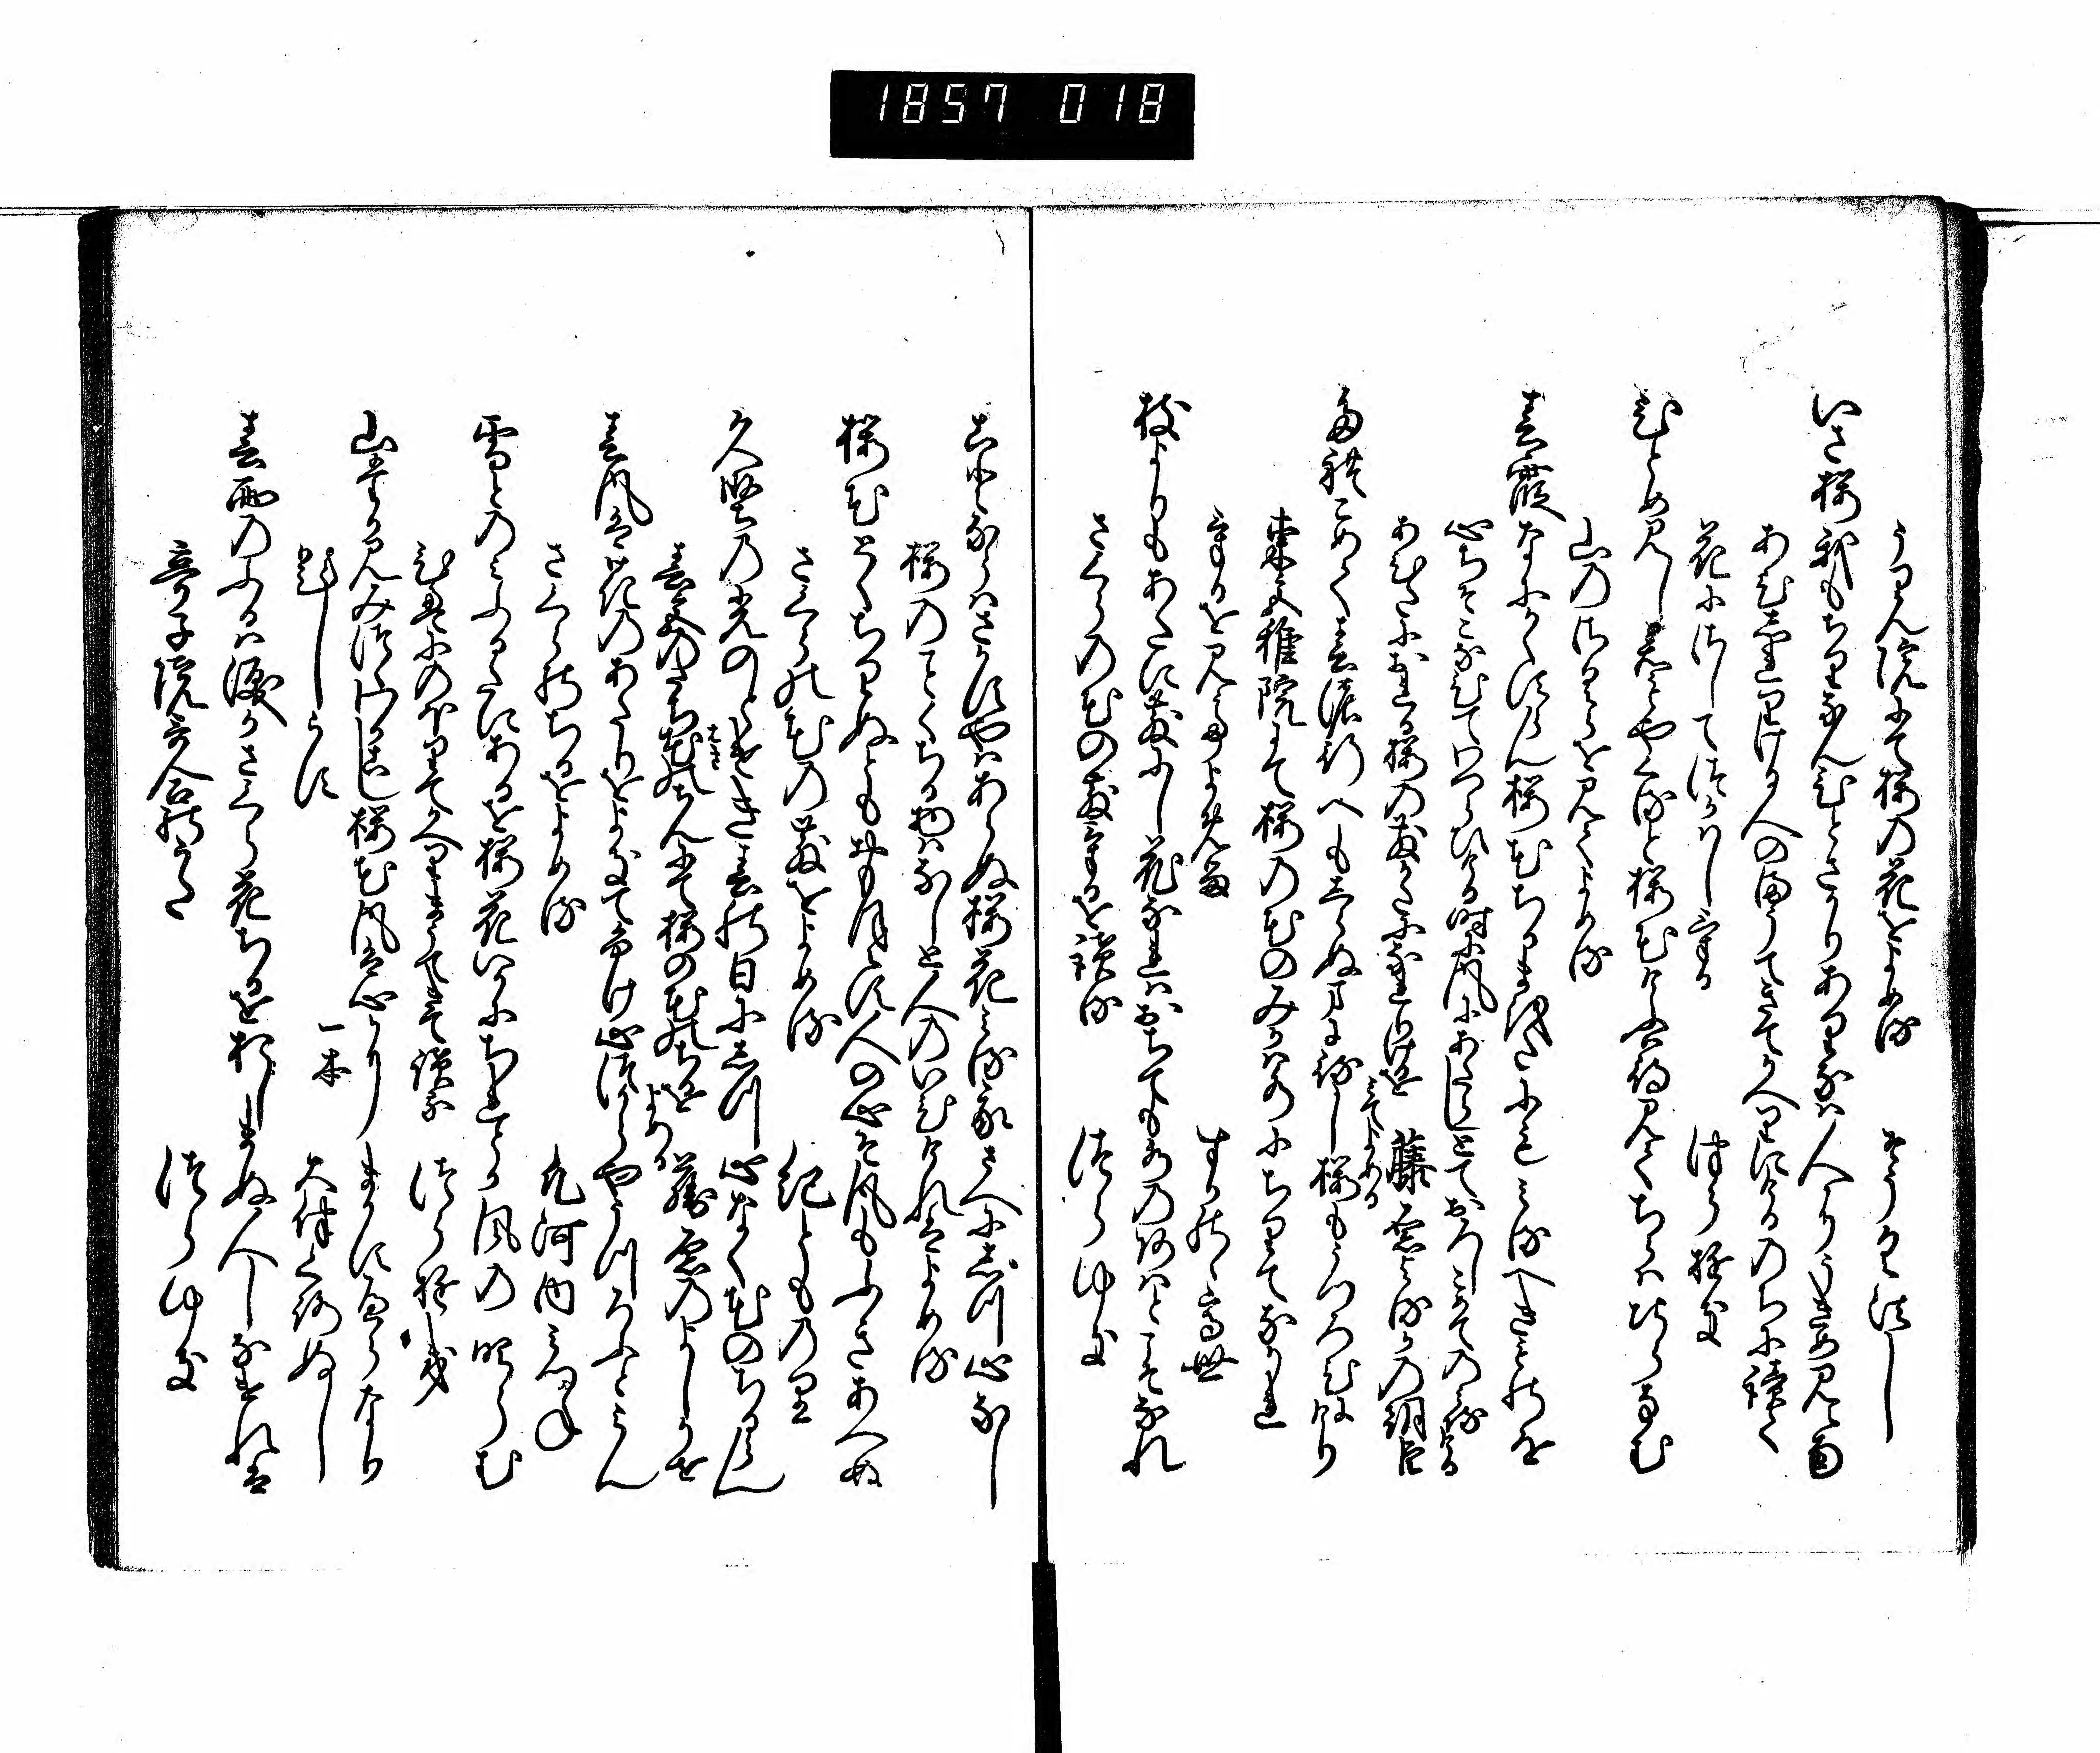 1857 018
うりん院にて桜の花をよめる　そうく法し
いさ桜我もちりなんひとさかりありなは人にうきめ見えなん
あひしれりける人のまうてきてかへりにけるのちに読て
花にさしてつかはしける　つらゆき
ひとめ見し君もやくると桜花けふは待見てちらはちらなむ
山のさくらを見てよめる
春霞なにかくすらん桜花ちるまをたにもみるへきものを
心ちそこなひてわつらひける時に風にあたらしとておろしこめてのみ侍ける
あひたにおれる桜の散かたになれりけるを見てよめる　藤原よるかの朝臣
たれこめて春の行へもしらぬまに待し桜もうつろひにけり
東宮雅院にて桜の花のみかは水にちりてなかれ
けるを見てよめる　すかのゝ高世
枝よりもあたに散にし花なれはおちても水のあはとこそなれ
さくらの花の散けるを読る　つらゆき
ことならはさかすやはあらぬ桜花みる我さへにしつ心なし
桜のことくちる物はなしと人のいひけれはよめる
桜花とくちりぬともおもほえす人の心そ風もふきあへぬ
さくらの花の散をよめる　紀とものり
久堅の光のとけき春の日にしつ心なく花のちるらん
春宮のたちはきのちんにて桜の花のちるをよめる　藤原のよしかせ
春風は花のあたりをよきてふけ心つからやうつろふとみん
さくらのちるをよめる　凡河内みつね
雪とのみふるたにあるを桜花いかにちれとか風の吹らむ
ひえにのほりてかへりまうてきて読る　つらゆき
山たかみみつゝわかこし桜花風は心にまかすへらなり
題しらす　一本　大伴くろぬし
春雨のふるは涙かさくら花ちるを惜しまぬ人しなけれは
亭子院哥合のうた　つらゆき